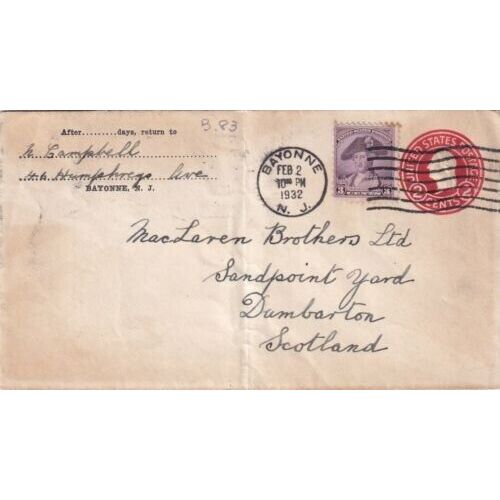 After.........days, return to
N. Campbell
46 Humphreys Ave
BAYONNE, N. J.
B.83
BAYONNE
FEB 2
10 PM
1932
N. J.
3 3
UNITED STATES
2 2
CENTS
MacLaren Brothers Ltd
Sandpoint Yard
Dumbarton
Scotland